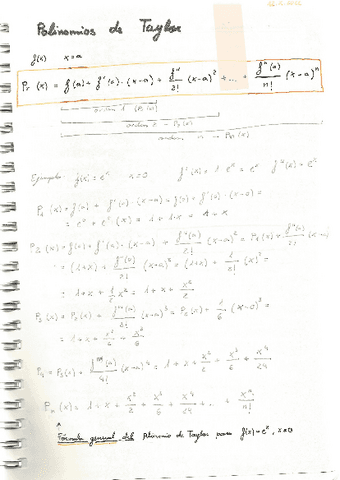 Polinomios de Taylor
f(x) x=a
Pn (x) = f(a) + f'(a) · (x-a) + f''(a)/2! (x-a)² + ... + f^n(a)/n! (x-a)^n
orden 1 → P1(x)
orden 2 → P2(x)
orden n → Pn(x)
Ejemplo: f(x) = e^x x=0 f'(x) = 1 · e^x = e^x f''(x) = e^x
P1(x) = f(a) + f'(a) · (x-a) = f(0) + f'(0) · (x-0) =
= e^0 + e^0 · (x) = 1 + 1 · x = 1 + x
P2(x) = f(a) + f'(a) · (x-a) + f''(a)/2! (x-a)² = P1(x) + f''(a)/2! (x-a)
= (1+x) + f''(a)/2! (x-a)² = (1+x) + 1/2! (x)² =
= 1 + x + 1/2 x² = 1 + x + x²/2
P3(x) = P2(x) + f'''(a)/3! (x-a)³ = P2(x) + 1/6 (x-0)³ =
= 1 + x + x²/2 + x³/6
P4 = P3(x) + (a)/4! (x-a)⁴ = 1 + x + x²/2 + x³/6 + x⁴/24
Pn(x) = 1 + x + x²/2 + x³/6 + x⁴/24 + ... + x^n/n!
Fórmula general del Polinomio de Taylor para f(x) = e^x, x=0